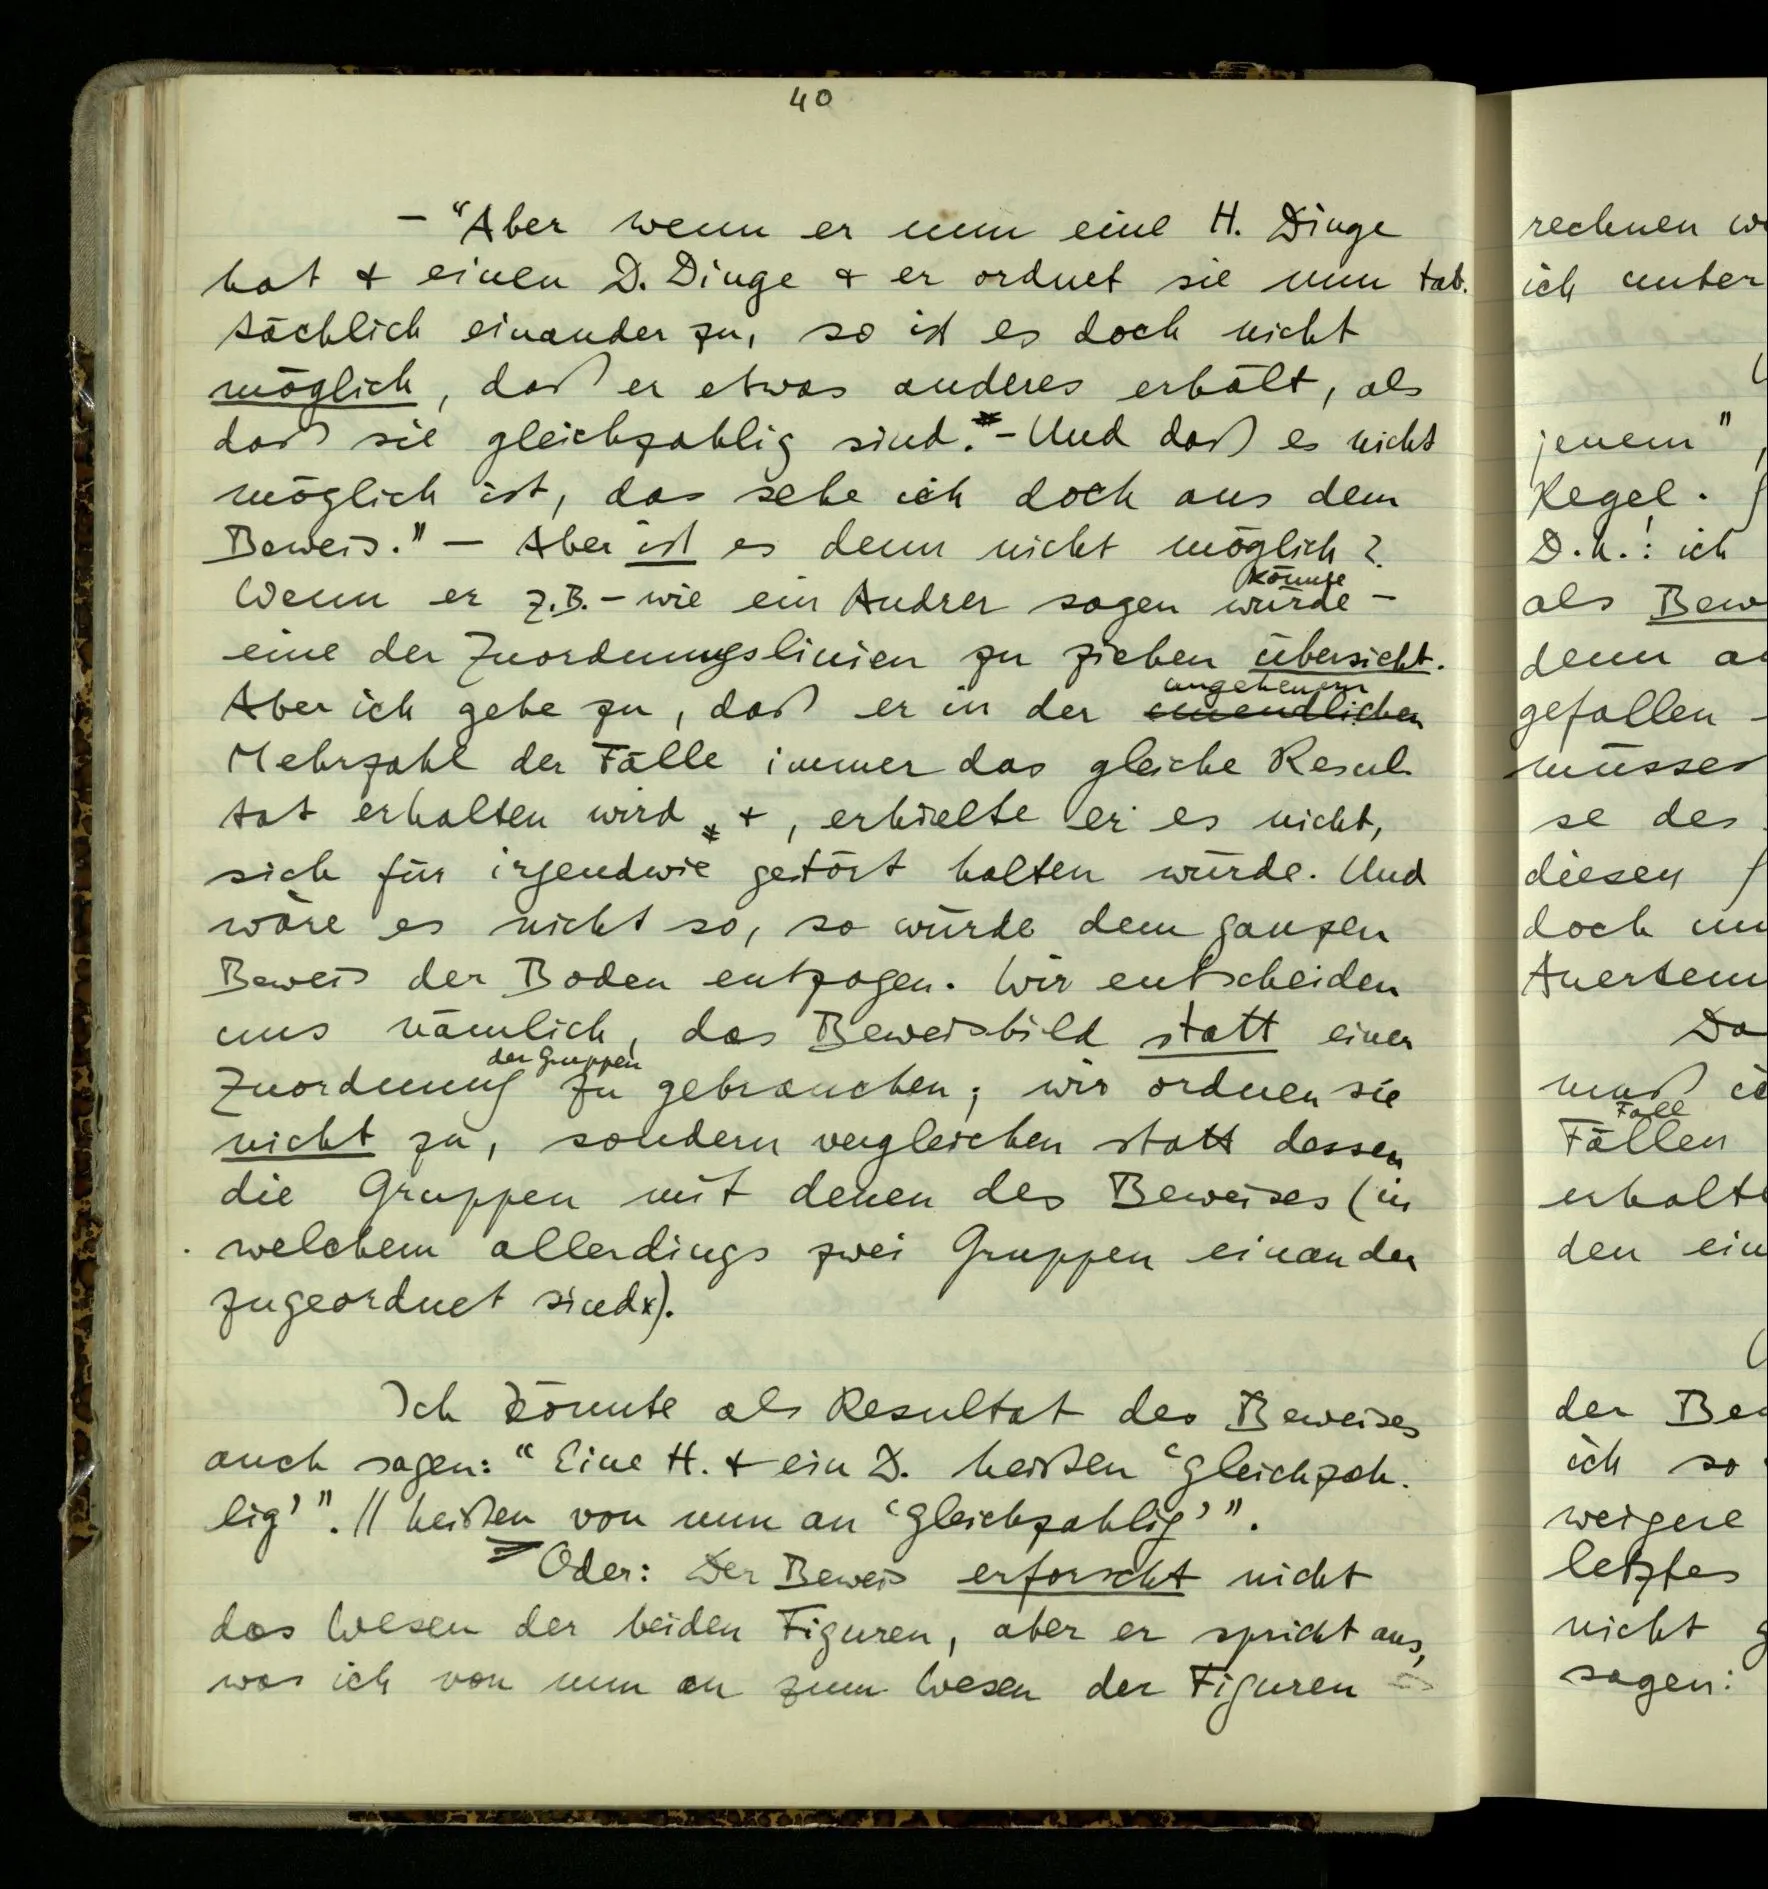 40
– “Aber wenn er nun eine H. Dinge
hat & einen D. Dinge & er ordnet sie nun tat-
sächlich einander zu, so ist es doch nicht
möglich, daß er etwas anderes erhält, als
daß sie gleichzahlig sind. – Und daß es nicht
möglich ist, das sehe ich doch aus dem
Beweis.” – Aber ist es denn nicht möglich?
könnte
Wenn er z.B. – wie ein Andrer sagen würde –
eine der Zuordnungslinien zu ziehen übersieht.
ungeheuern
Aber ich gebe zu, daß er in der unendlichen
Mehrzahl der Fälle immer das gleiche Resul-
tat erhalten wird * + , erhielte er es nicht,
sich für irgendwie gestört halten würde. Und
wäre es nicht so, so würde dem ganzen
Beweis der Boden entzogen. Wir entscheiden
uns nämlich, das Beweisbild statt einer
der Gruppen
Zuordnung zu gebrauchen; wir ordnen sie
nicht zu, sondern vergleichen statt dessen
die Gruppen mit denen des Beweises (in
welchem allerdings zwei Gruppen einander
zugeordnet sind x).
Ich könnte als Resultat des Beweises
auch sagen: “Eine H. & ein D. heißen ‘gleichzah-
lig’”. // heißen von nun an ‘gleichzahlig’”.
Oder: Der Beweis erforscht nicht
das Wesen der beiden Figuren, aber er spricht aus,
was ich von nun an zum Wesen der Figuren
rechnen we
ich unter
jenem”,
Regel.
D.h.: ich
als Bew
denn a
gefallen –
müssen
se des
diesen
doch un
Anerkenn
Da
muß ic
Fall
Fällen
erhalte
den ein
der Be
ich so
weigere
letztes
nicht g
sagen: